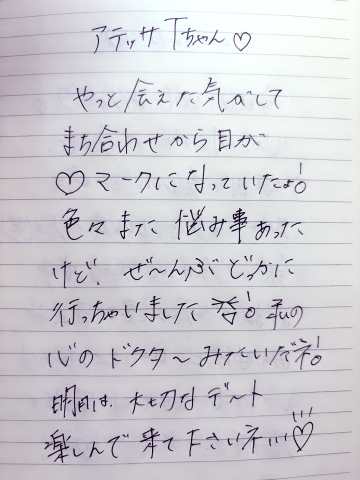 アテッサTちゃん♡
やっと会えた気がして
まち合わせから目が
♡マークになっていたよ!
色々また悩み事あった
けど、ぜ〜んぶどっかに
行っちゃいました 笑! 私の
心のドクター〜みたいだネ!
明日は、大切なデート
楽しんで来て下さいネ!!!♡